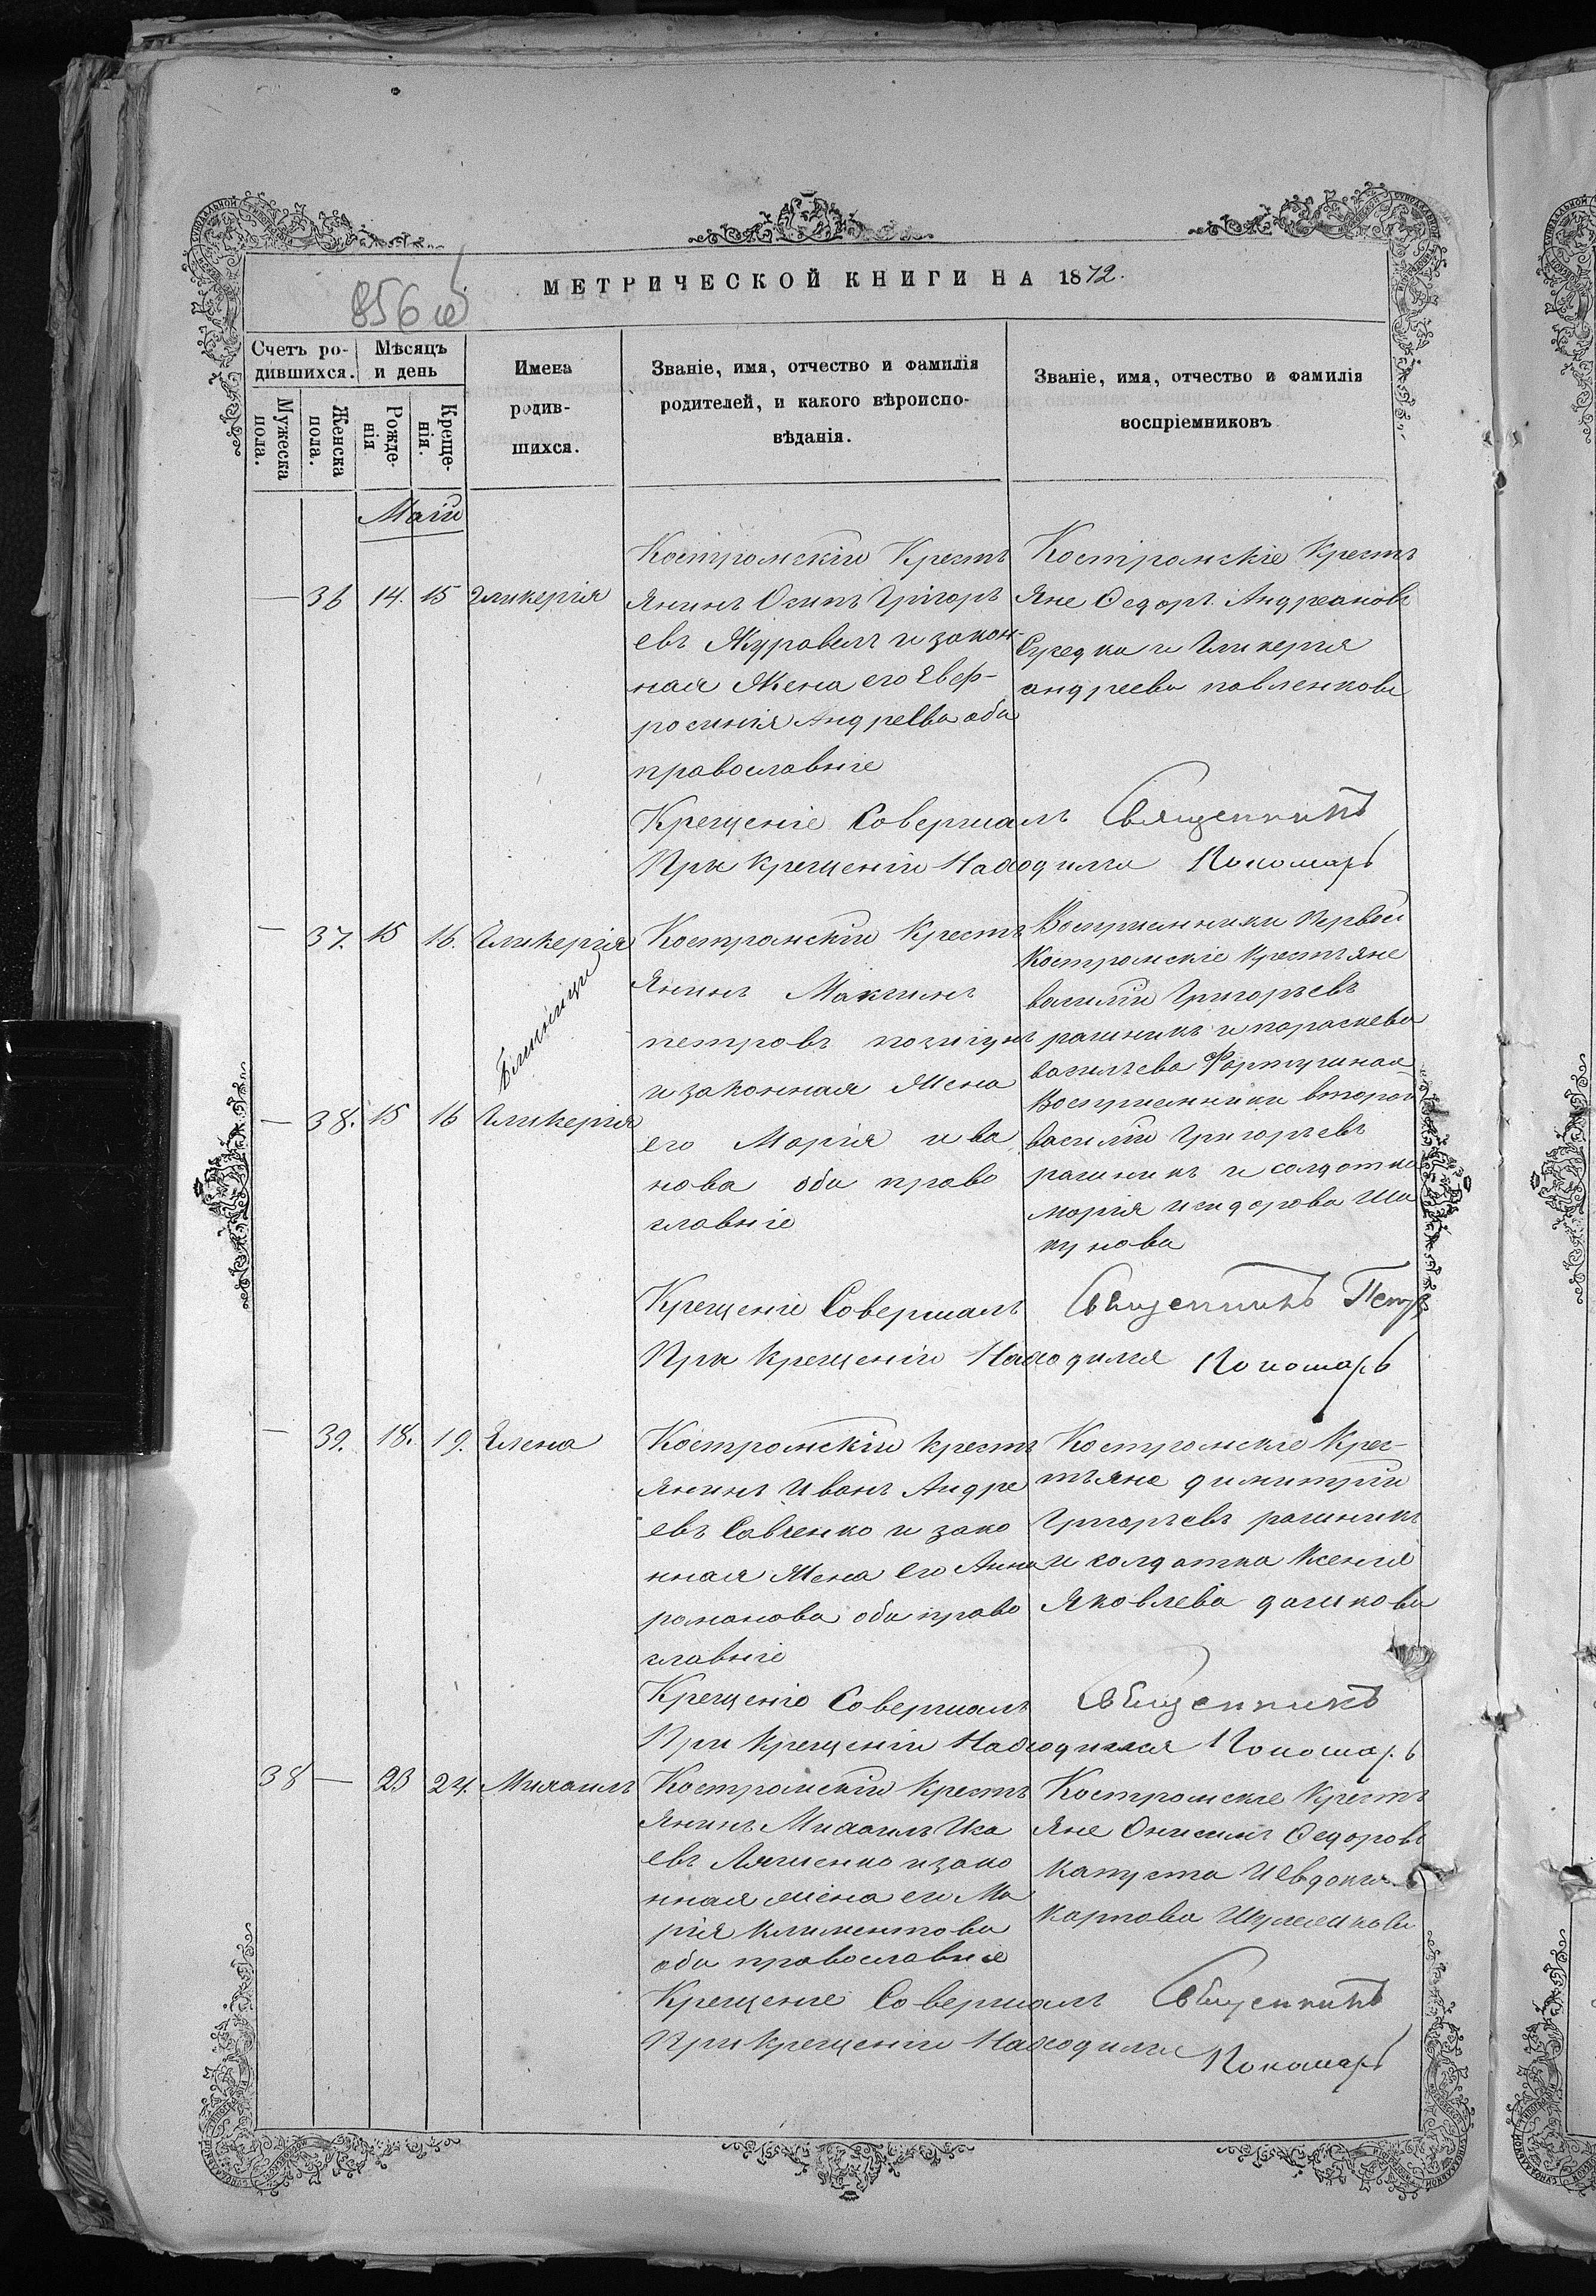 МЕТРИЧЕСКОЙ КНИГИ НА 1872.
856 об
Счетъ ро-
дившихся.
Мужеска
пола.
Женска
пола.
Мѣсяцъ
и день
Рожде-
нія
Креще-
нія.
Имена
родив-
шихся.
Званіе, имя, отчество и фамилія
родителей, и какого вѣроиспо-
вѣданія.
Званіе, имя, отчество и фамилія
воспріемниковъ
Маій
— 36 14. 15 Гликерія
Костромскій Кресть
янинъ Осипъ Григорь
евъ Журавель и закон-
ная Жена его Евф-
росинія Андреева оба
православніе
Костромскіе Кресть
яне Федоръ Андреановъ
и Гликерія
андреева павленкова
Крещеніе Совершалъ Священникъ
При крещеніи Находился Пономарь
— 37. 15 16. Гликерія
Близници
— 38. 15 16 Гликерія
Костромскій Кресть
янинъ Максимъ
петровъ
и законная Жена
его Марія ива
нова оба право
славніе
Восприемники первой
Костромскіе Крестьяне
василій Григорьевъ
рашникъ и параскева
васильева
Восприемники второй
василій Григорьевъ
рашникъ и салдатка
марія исидорова Ши
кунова
Крещеніе Совершалъ Священникъ Петр
При крещеніи Находился Пономарь
— 39. 18. 19. Елена
Костромскій кресть
янинъ Иванъ Андре
евъ Савченко и зако
нная Жена его Анна
романова оба право
славніе
Костромскіе Крес-
тьяне димитрій
Григорьевъ рашникъ
и солдатка Ксенія
Яковлева дашкова
Крещеніе Совершалъ Священникъ
При крещеніи Находился Пономарь
38 — 23 24. Михаилъ
Костромскій Кресть
янинъ Михаилъ Иса
евъ Ляшенко и зако
нная жена его Ма
рія климентова
оба православніе
Костромскіе Кресть
яне Онисимъ Федоровъ
Капуста и евдокия
карпова
Крещеніе Совершалъ Священникъ
При крещеніи Находился Пономарь